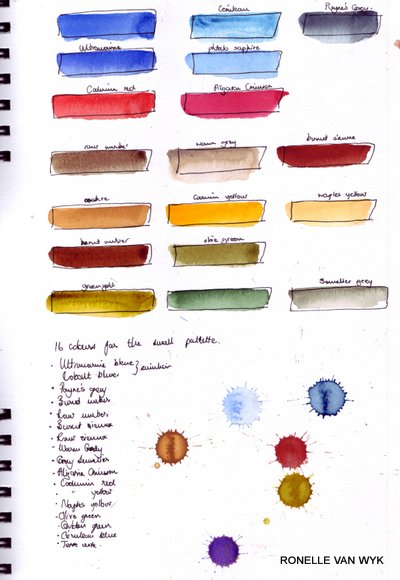 Cerulean Payne's Grey
Ultramarine phtalo sapphire
Cadmium red Alizarin Crimson
raw umber warm grey burnt sienna
Cadmium yellow naples yellow
burnt umber olive green
green gold Sennelier grey
16 colours for the small palette.
Ultramarine blue
Cobalt blue
Payne's grey
Burnt umber
Raw umber
Burnt sienna
Raw sienna
Warm Grey
Grey Sennelier
Alizarin Crimson
Cadmium red
" yellow
Naples yellow
Olive green
green
Cerulean blue
Terre
RONELLE VAN WYK